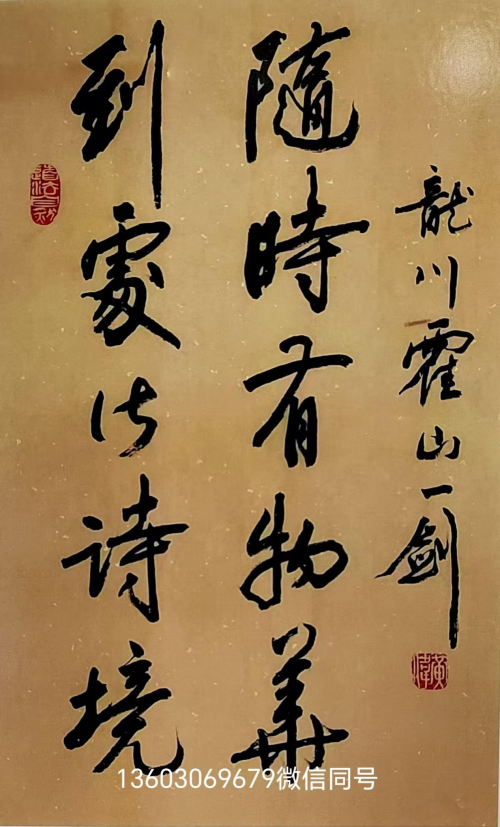 到處皆詩境
隨時有物華
龍川霍山一劍
13603069679微信同号